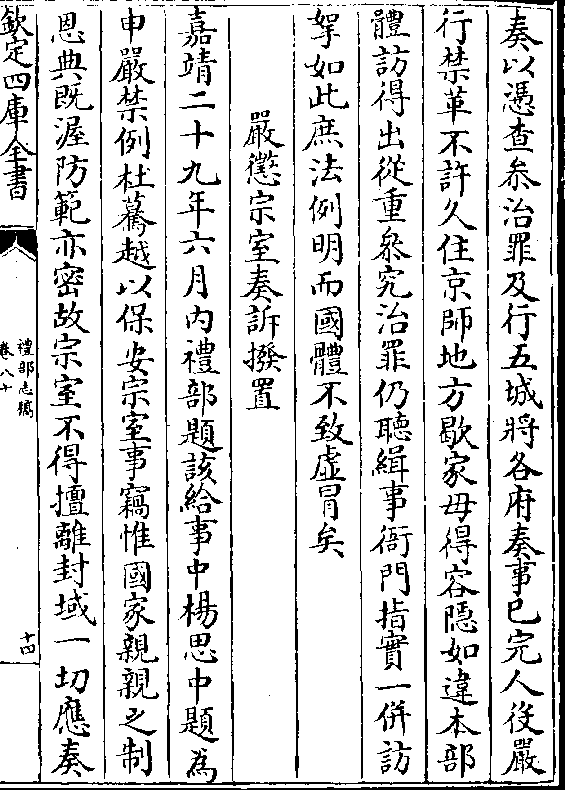 奏以憑查叅治罪及行五城將各府奏事已完人役嚴
行禁革不許久住京師地方歇家毋得容隱如違本部
體訪得出從重叅究治罪仍聽緝事衙門指實一併訪
拏如此庶法例明而國體不致虛冐矣
嚴懲宗室奏訴撥置
嘉靖二十九年六月內禮部題該給事中楊思中題為
申嚴禁例杜驀越以保安宗室事竊惟國家親親之制
恩典既渥防範亦密故宗室不得擅離封域一切應奏
欽定四庫全書
禮部志稿
卷八十
十四